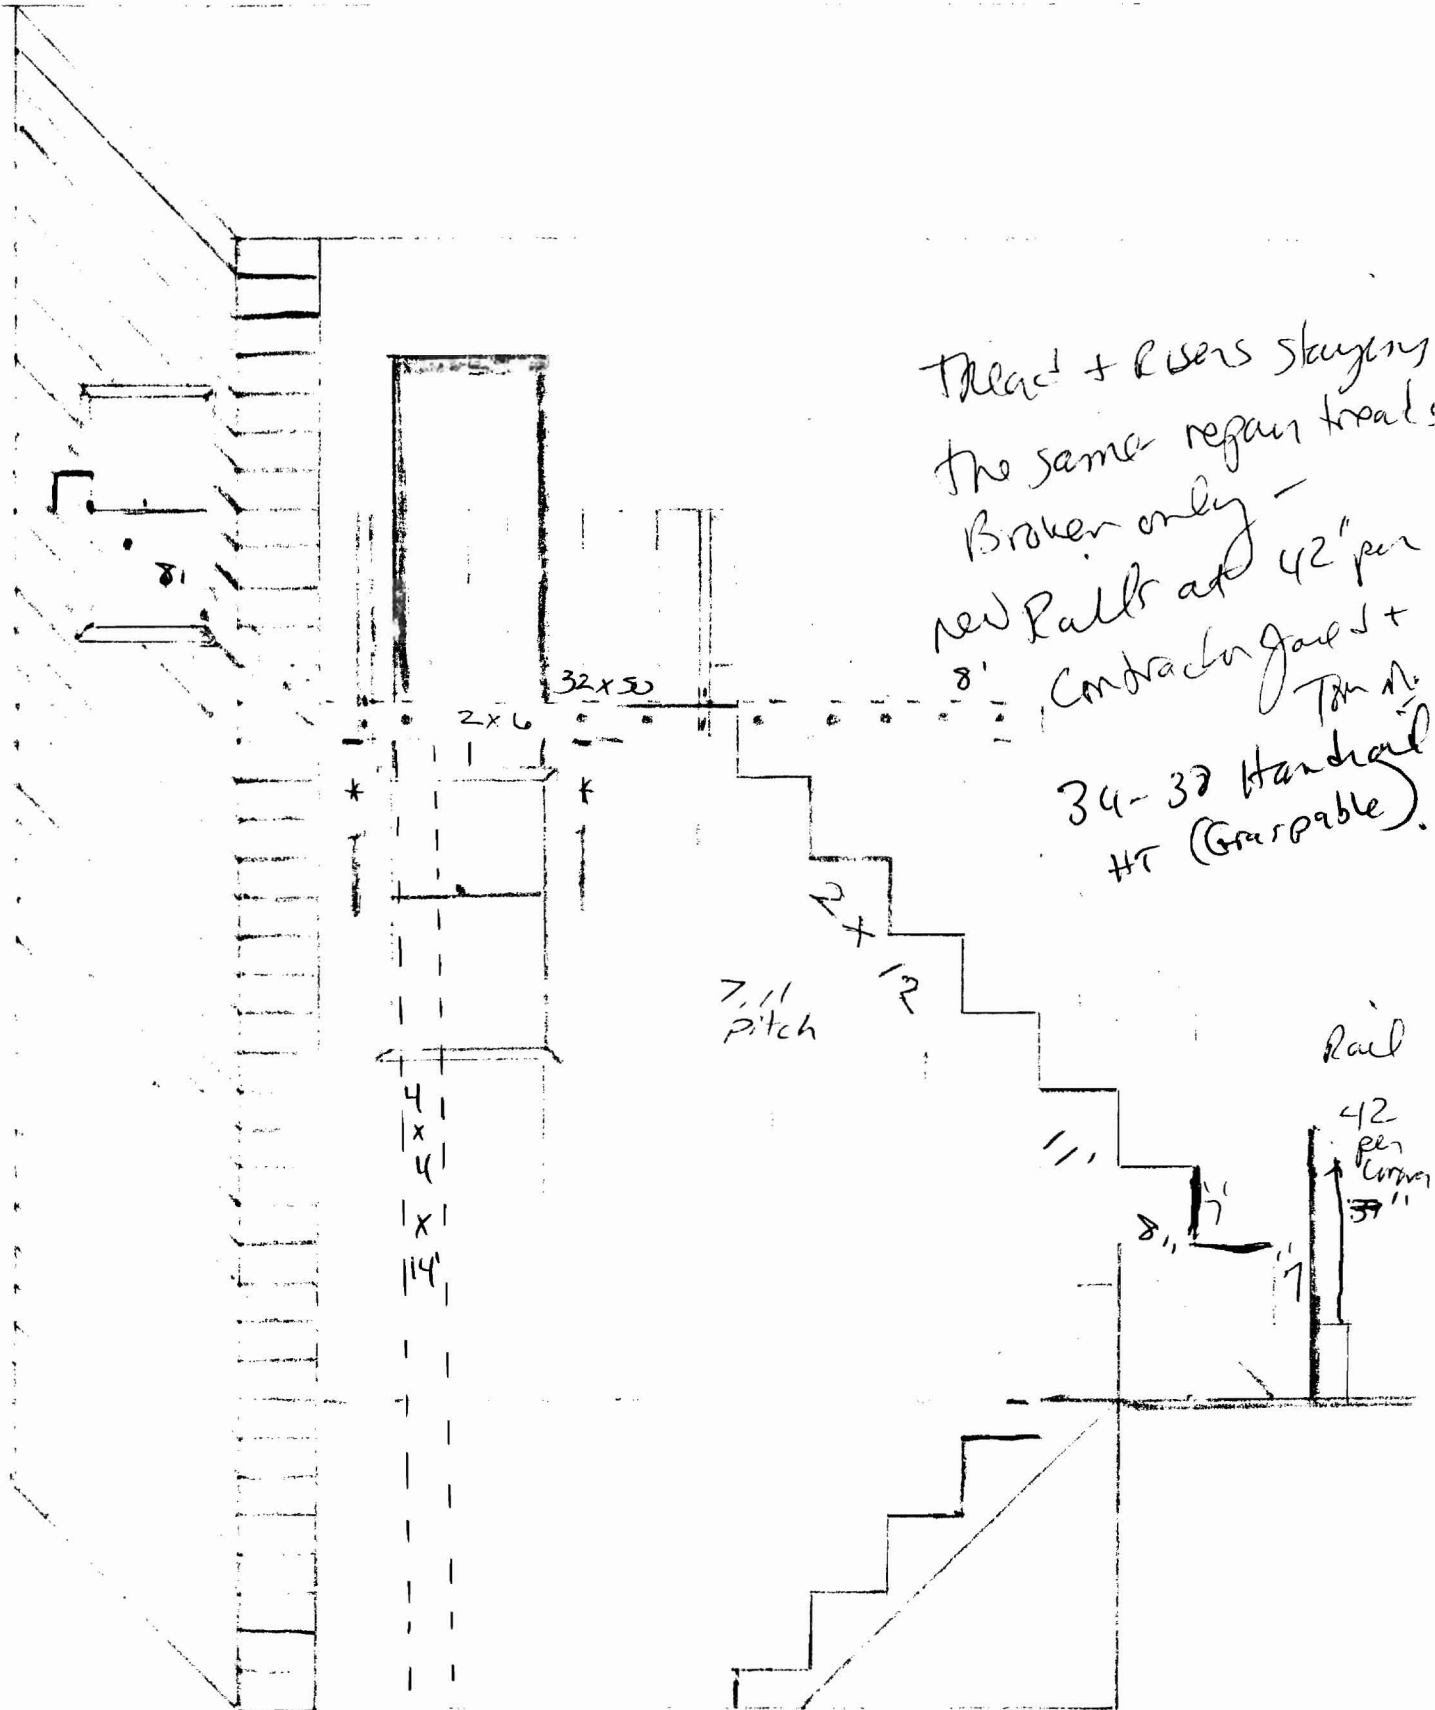 Tread + Risers staying
the same repair treads
Broken only -
new Rails at 42" per
Contractor +
Tom M.
34-38 Handrail
HT (Graspable).
8'
32 x 50
8'
2 x 6
*
*
2 x 12
7,11
pitch
Rail
42
per
39"
4
x
4
x
14'
7"
8"
7"